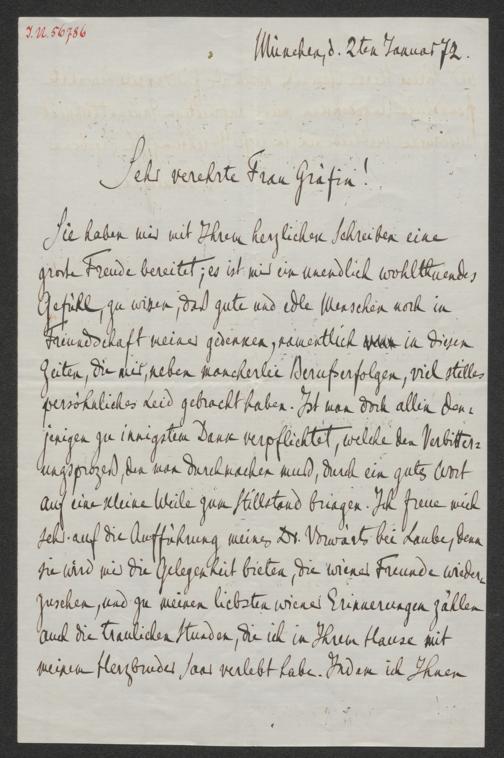 J.N. 56786
München, d. 2ten Januar 72.
Sehr verehrte Frau Gräfin!
Sie haben mir mit Ihrem herzlichen Schreiben eine
große Freude bereitet; es ist mir ein unendlich wohlthuendes
Gefühl, zu wißen, daß gute und edle Menschen noch in
Freundschaft meiner gedenken, namentlich in diesen
Zeiten, die mir, neben mancherlei Berufserfolgen, viel stilles
persöhnliches Leid gebracht haben. Ist man doch allein den-
jenigen zu innigstem Dank verpflichtet, welche den Verbitter-
ungsprozeß, den man durchmachen muß, durch ein gutes Wort
auf eine kleine Weile zum Stillstand bringen. Ich freue mich
sehr auf die Aufführung meines Dr. Vorwärts bei Laube, denn
sie wird mir die Gelegenheit bieten, die wiener Freunde wieder-
zusehen, und zu meinen liebsten wiener Erinnerungen zählen
auch die traulichen Stunden, die ich in Ihrem Hause mit
meinem Herzbruder Saar verlebt habe. Indem ich Ihnen